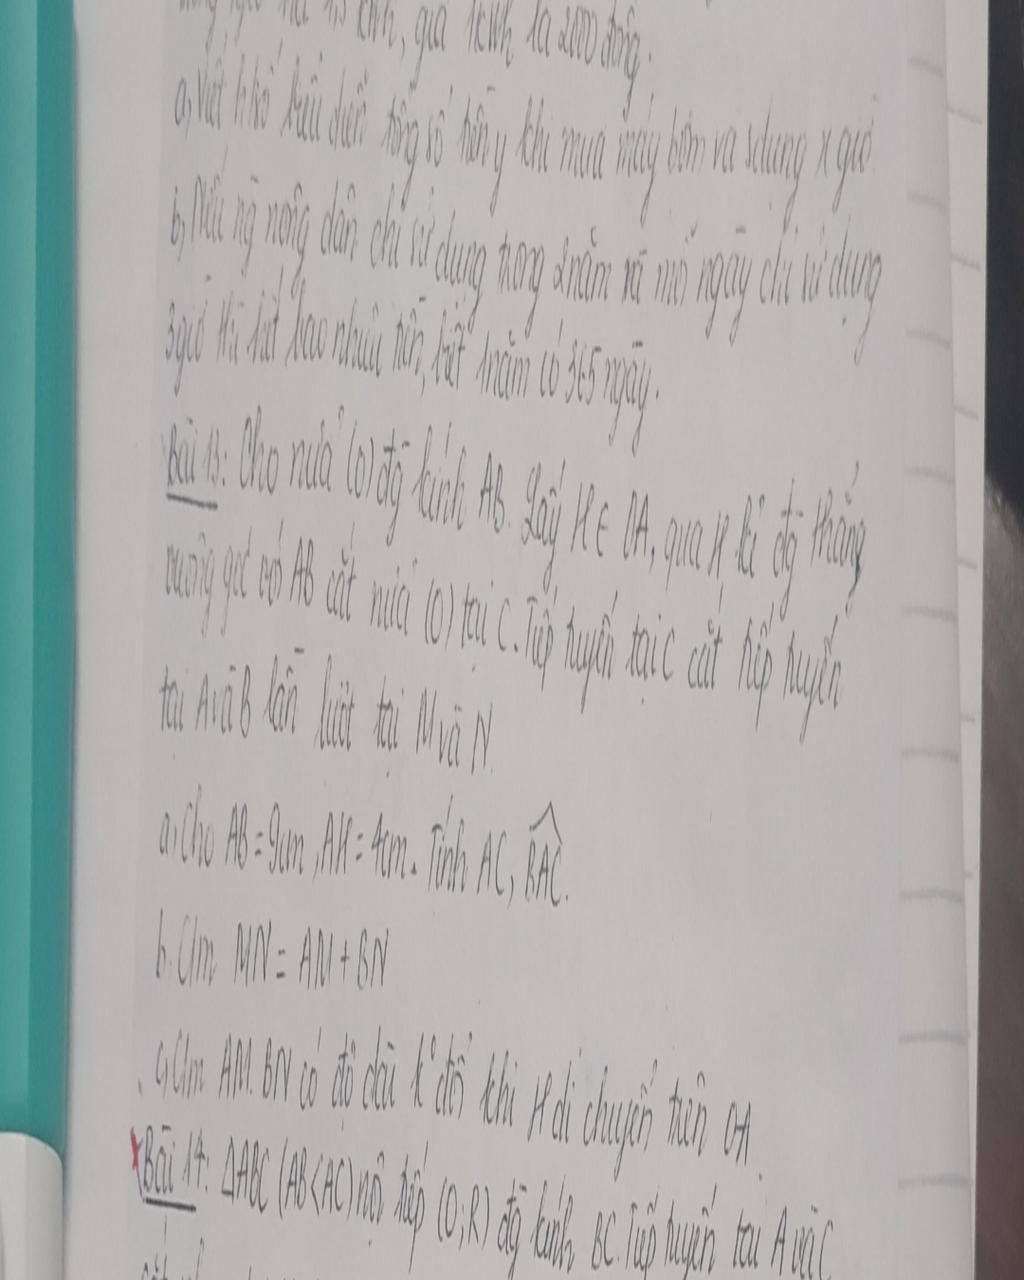 giá 1kWh là 2000 đồng.
a, Viết biểu diễn tổng số tiền y khi mua máy bơm và sdụng x giờ
b, Nếu ng nông dân chỉ sử dụng trong 2 năm và mỗi ngày chỉ sử dụng
3 giờ thì hết bao nhiêu tiền, biết 1 năm có 365 ngày.
Bài 13: Cho nửa (O) đg kính AB. Lấy H ∈ OA, qua H kẻ đg thẳng
vuông góc với AB cắt nửa (O) tại C. Tiếp tuyến tại C cắt tiếp tuyến
tại A và B lần lượt tại M và N.
a, Cho AB = 9cm, AH = 4cm. Tính AC, \widehat{BAC}.
b. Cm MN = AM + BN
c, Cm AM.BN có độ dài k đổi khi H di chuyển trên OA.
Bài 14: ΔABC (AB<AC) nội tiếp (O;R) đg kính BC. Tiếp tuyến tại A và C